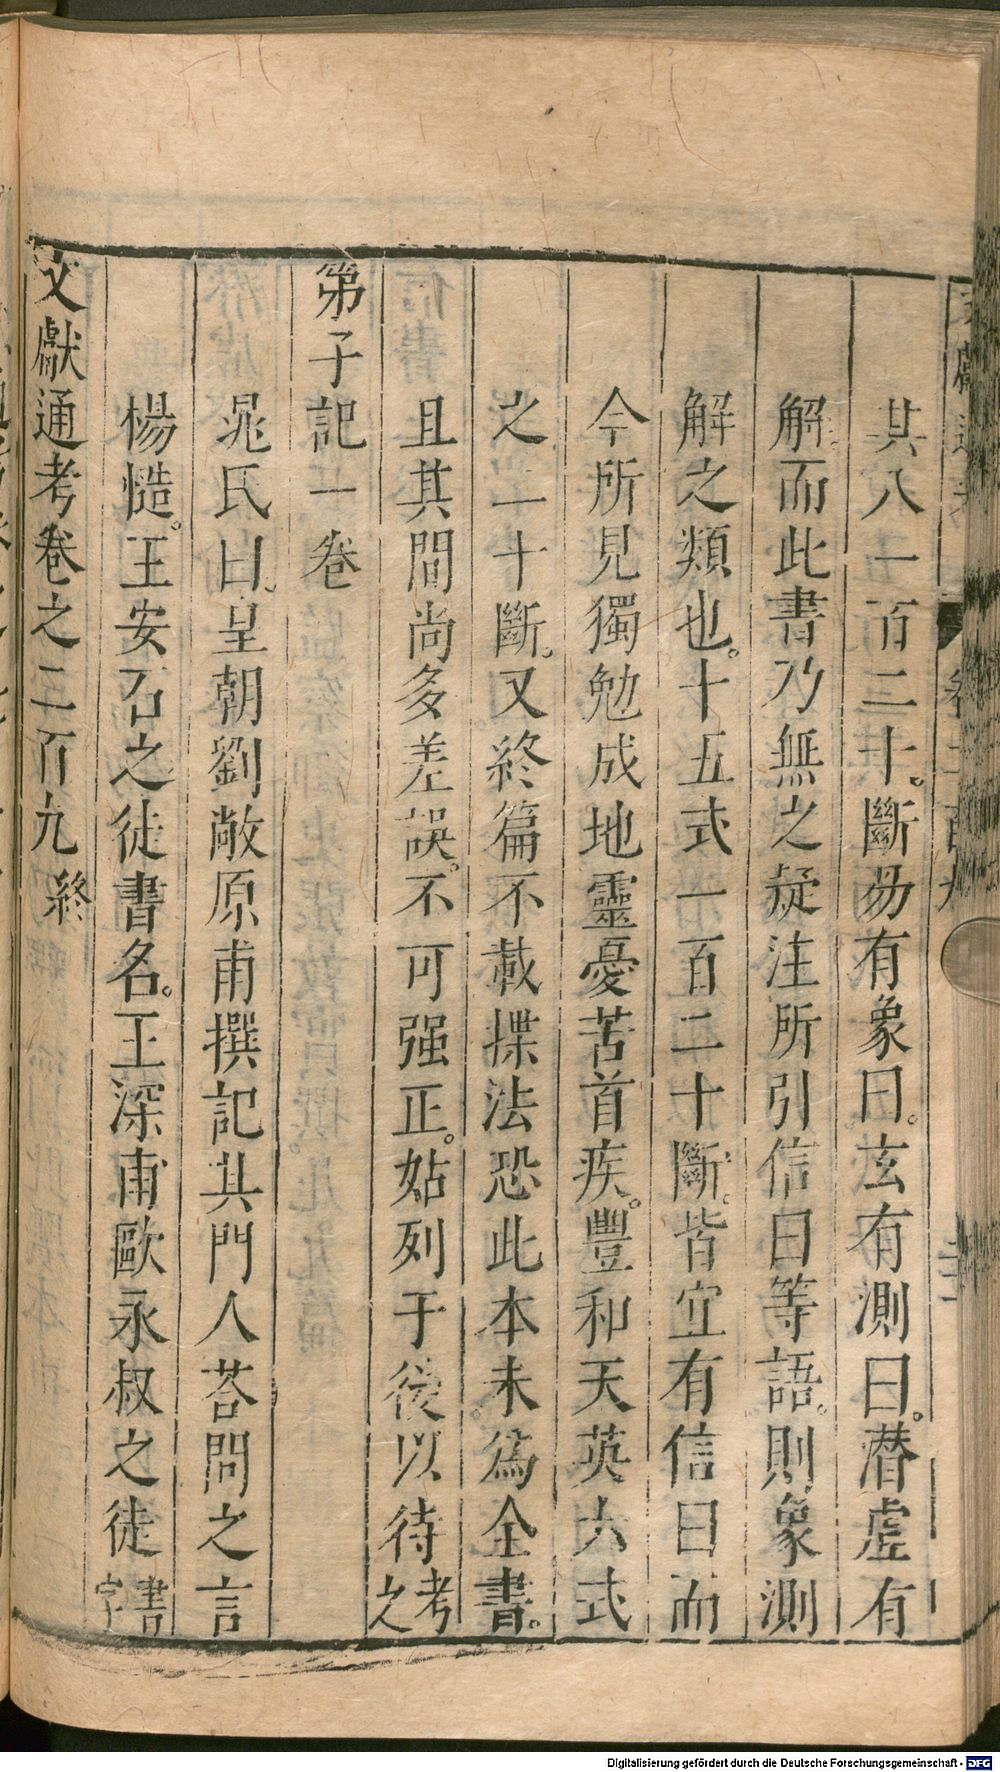 其八一百二十。斷易有象曰。玄有測曰。潜虛有
解而此書乃無之疑注所引信曰等語。則象測
解之類也。十五式一百二十斷。皆宜有信曰而
今所見獨勉成地靈憂苦首疾。豐和天英六式
之二十斷。又終篇不載揲法恐此本未為全書。
且其間尚多差誤。不可强正。姑列于後以待考之
弟子記一卷
晁氏曰。皇朝劉敞原甫撰記其門人荅問之言
楊慥。王安石之徒書名。王深甫歐永叔之徒書字
文獻通考卷之二百九終
Digitalisierung gefördert durch die Deutsche Forschungsgemeinschaft - DFG